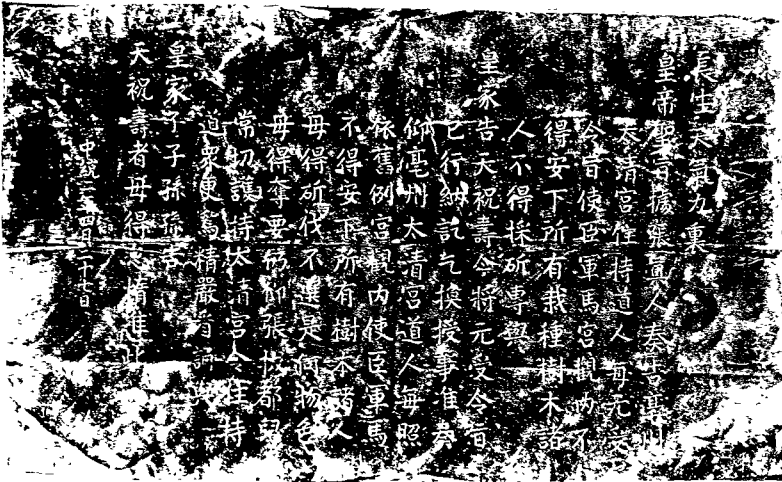 長生天氣力裏
皇帝聖旨據張真人奏告亳州
太清宮住持道人每元
令旨使臣軍馬宮觀內不
得安下所有栽種樹木諸
人不得採斫專與
皇家告天祝壽令將元受令旨
已行納訖乞換授事准奏
仰亳州太清宮道人每照
依舊例宮觀內使臣軍馬
不得安下所有樹木諸人
毋得斫伐不選是何物色
毋得奪要仍仰張拔都
常切護持太清宮令住持
道眾更為精嚴
皇家子子孫孫告
天祝壽者毋得怠惰准此
中統二年四月二十七日